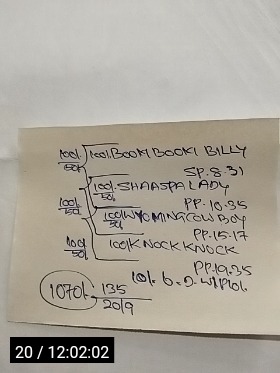 100/. 100/. BOOKI BOOKI BILLY
50/.
SP. 8.31
100/. SHAASPA LADY
50/.
PP. 10.35
100/. 100/ WYOMING COW BOY
50/. 50/.
PP. 15.17
100/ 100/ KNOCK KNOCK
50/.
PP. 19.35
10/.
1070/. 135
2019
20 / 12:02:02